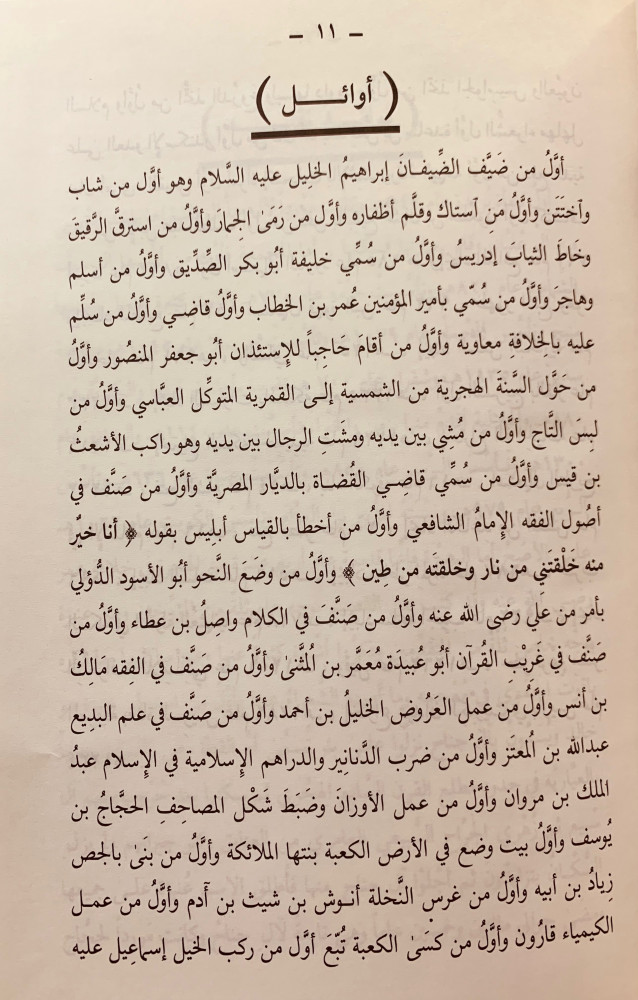 – ١١ –
( أوائـــل )
أوَّلُ من ضَيَّف الضِّيفانَ إبراهيمُ الخلِيل عليه السَّلام وهو أوَّل من شاب
وآختَتَن وأوَّلُ مَنِ آستاك وقلَّم أظفاره وأوَّل من رَمَىٰ الجِمارَ وأوَّلُ من استرقَّ الرَّقيقَ
وخَاطَ الثيابَ إدريسُ وأوَّلُ من سُمِّي خليفة أبُو بكر الصِّدِّيق وأوَّلُ من أسلم
وهاجرَ وأوَّلُ من سُمّي بأمير المؤمنين عُمر بن الخطاب وأوَّلُ قاضِـي وأوَّلُ من سُلِّم
عليه بالخِلافةِ معاوية وأوَّلُ من أقامَ حَاجِباً للإِستئذان أبُو جعفر المنصُور وأوَّلُ
من حَوَّل السَّنةَ الهجرية من الشمسية إلىٰ القمرية المتوكِّل العبَّاسي وأوَّلُ من
لبِسَ التَّاج وأوَّلُ من مُشِي بين يديه ومشَتِ الرجال بين يديه وهو راكب الأشعثُ
بن قيس وأوَّلُ من سُمِّي قاضِـي القُضاة بالديَّار المصريَّة وأوَّلُ من صَنَّف في
أصُول الفقه الإِمامُ الشافعي وأوَّلُ من أخطأ بالقياس أبلِيس بقوله ﴿ أنا خيرٌ
منه خَلَقتَنِي من نار وخلقتَه من طِين ﴾ وأوَّلُ من وضَعَ النَّحو أبُو الأسود الدُّؤلي
بأمر من علي رضى الله عنه وأوَّلُ من صَنَّفَ في الكلام واصِلُ بن عطاء وأوَّلُ من
صَنَّف في غَرِيْبِ القُرآن أبُو عُبيدَة مُعَمَّر بن المُثَنىٰ وأوَّلُ من صَنَّف في الفِقه مَالِكُ
بن أنس وأوَّلُ من عمل العَرُوض الخليلُ بن أحمد وأوَّلُ من صَنَّف في علم البدِيع
عبدالله بن المُعتَز وأوَّلُ من ضرب الدَّنانِير والدراهم الإِسلامية في الإِسلام عبدُ
الملك بن مروان وأوَّلُ من عمل الأوزانَ وضَبَطَ شَكْل المصاحِفِ الحجَّاجُ بن
يُوسف وأوَّلُ بيت وضع في الأرض الكعبة بنتها الملائكة وأوَّلُ من بنَىٰ بالجص
زِيادُ بن أبيه وأوَّلُ من غرس النَّخلة أنـوش بن شيث بن آدم وأوَّلُ من عمـل
الكيمياء قارُون وأوَّلُ من كسَىٰ الكعبة تُبّعَ أوَّل من ركب الخيل إسماعِيل عليه